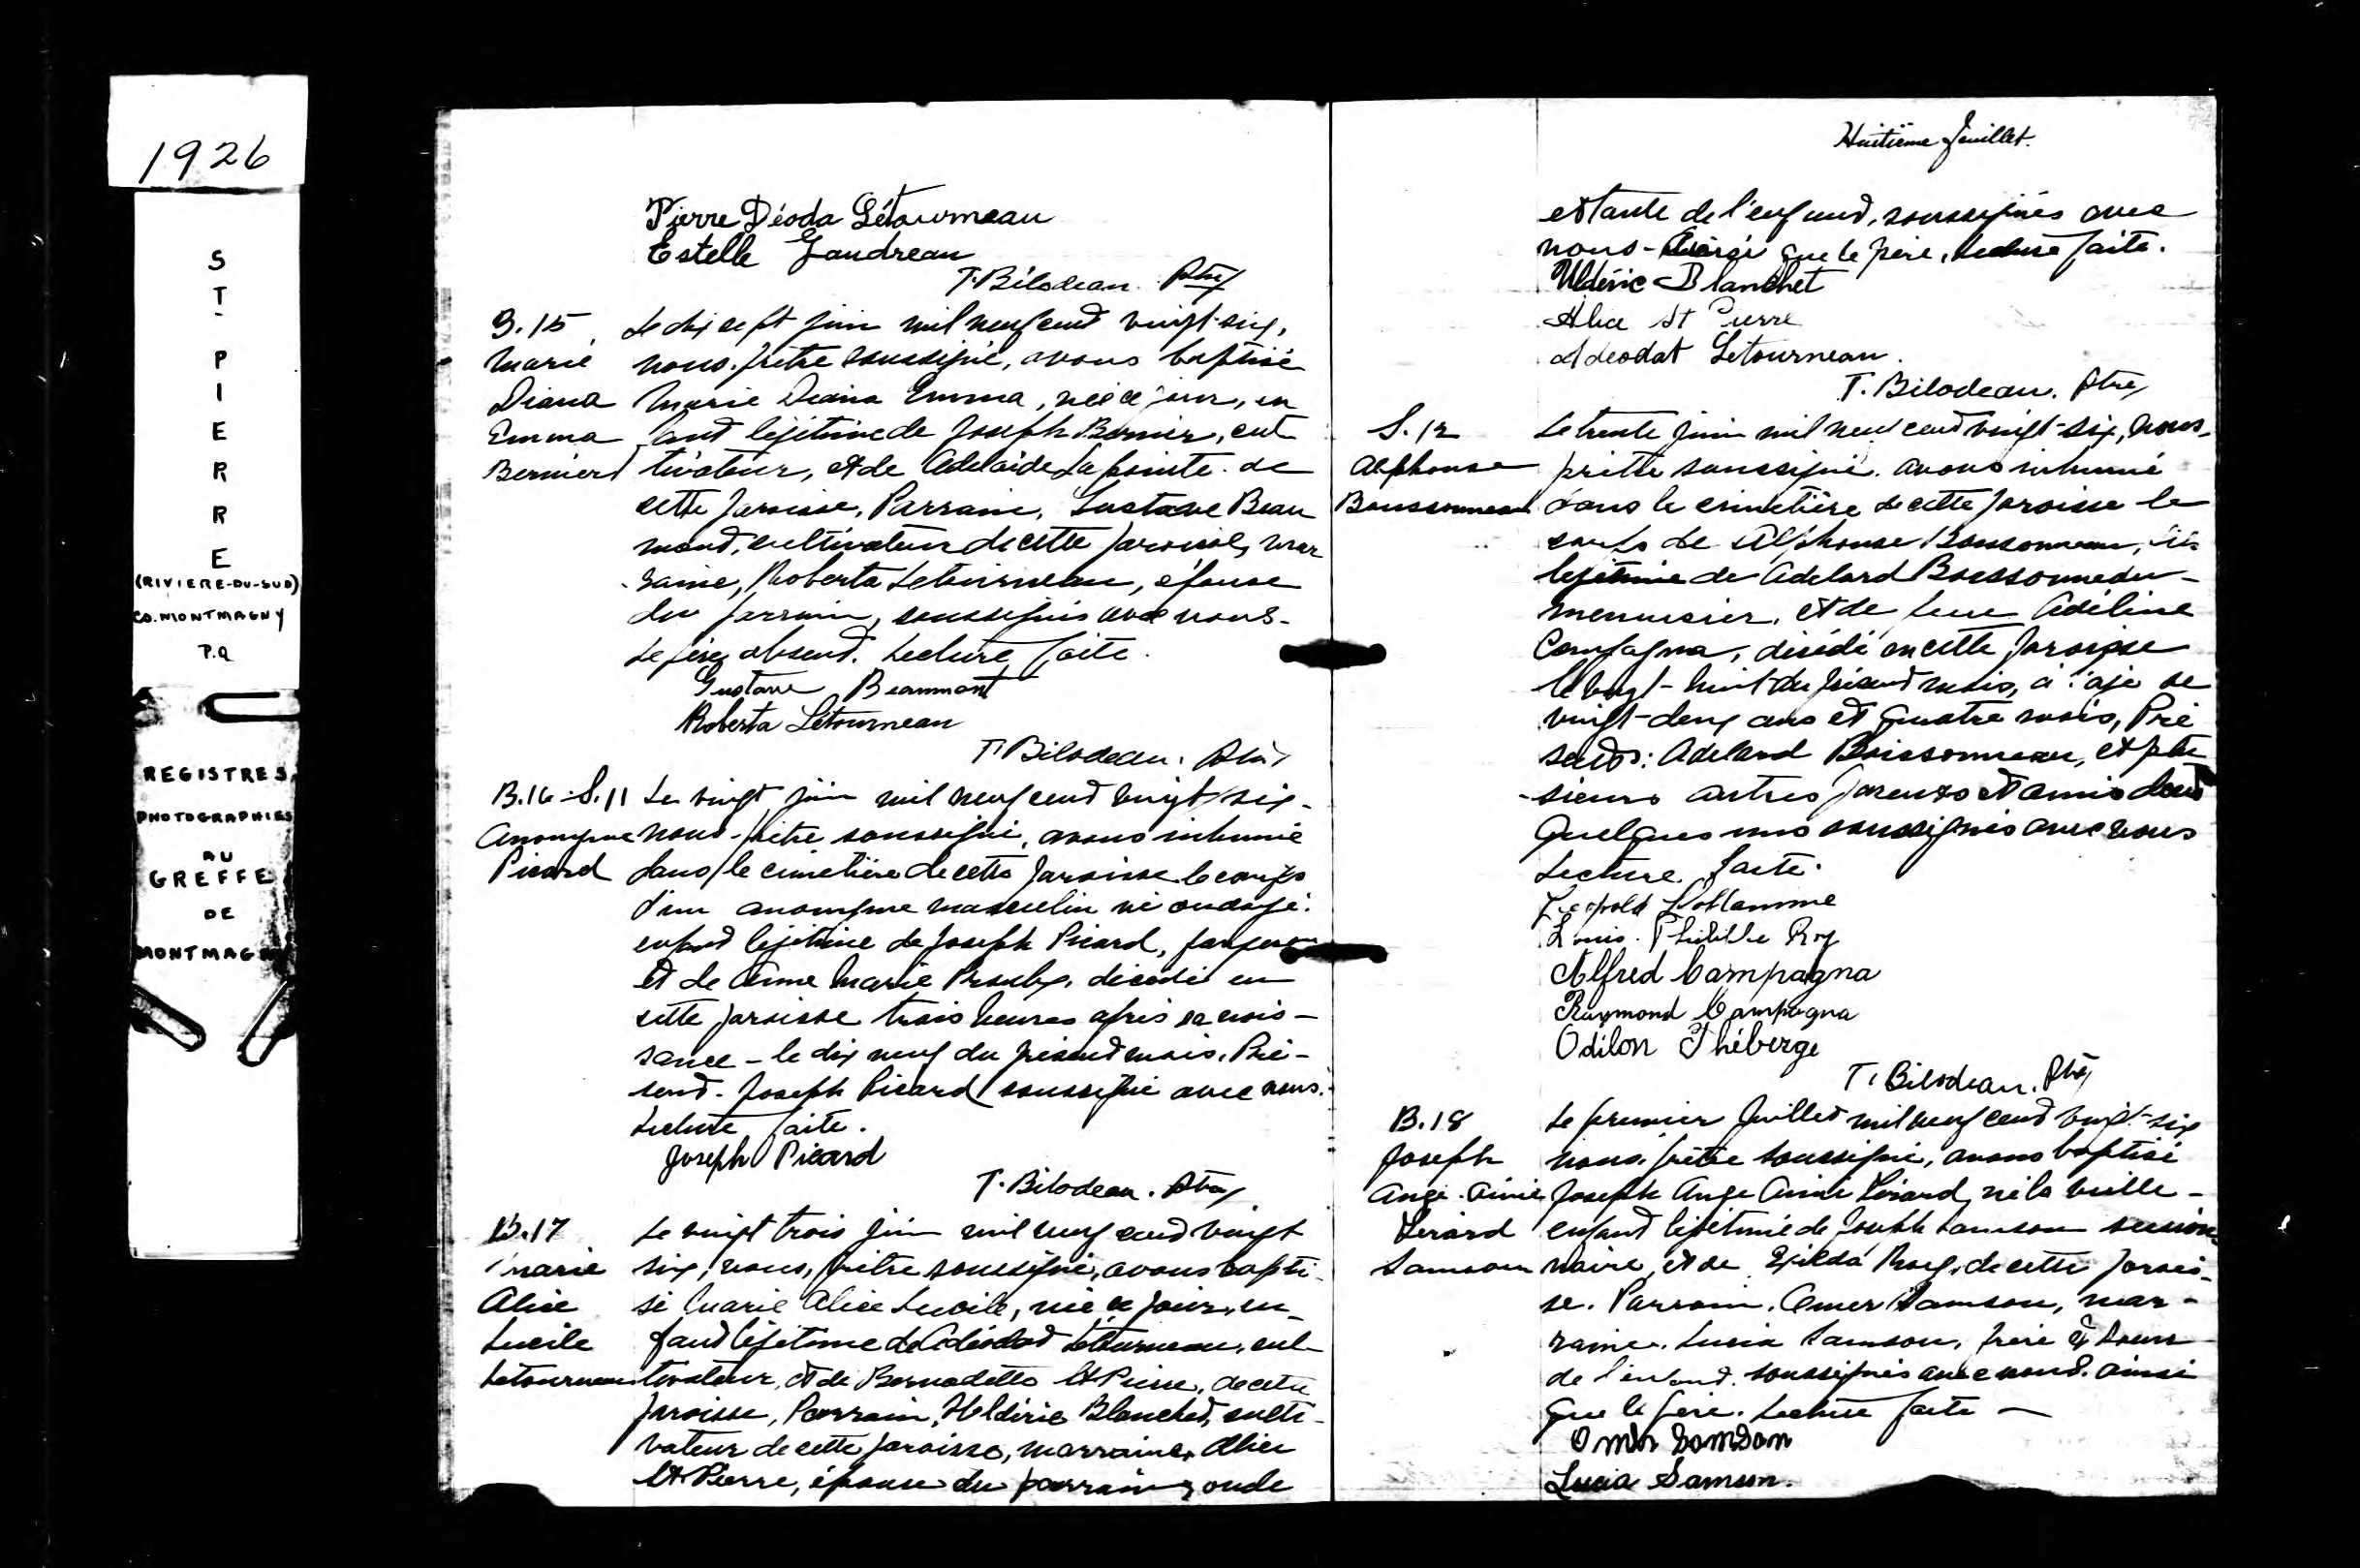 1926
ST PIERRE
(RIVIERE-DU-SUD)
CO. MONTMAGNY
P.Q
REGISTRES
PHOTOGRAPHIES
AU
GREFFE
DE
MONTMAGNY
Pierre Déoda Létourneau
Estelle Gaudreau
T. Bilodeau. Ptre
B.15
Marie
Diana
Emma
Bernier
Le dix sept juin mil neuf cent vingt-six,
nous, prêtre soussigné, avons baptisé
Marie Diana Emma, née ce jour, en
fant légitime de Joseph Bernier, cul
tivateur, et de Adelaide Lapointe de
cette paroisse, Parrain, Gustave Beau
mont, cultivateur de cette paroisse, mar
raine, Roberta Letourneau, épouse
du parrain, soussignés avec nous.
Le père absent. Lecture faite.
Gustave Beaumont
Roberta Létourneau
T. Bilodeau. Ptre
B.16-S.11
Anonyme
Picard
Le vingt juin mil neuf cent vingt six,
nous, prêtre soussigné, avons inhumé
dans le cimetière de cette paroisse le corps
d'un anonyme masculin né ondoyé.
enfant légitime de Joseph Picard,
et de Anne Marie Proulx, décédé en
cette paroisse trois heures après sa nais-
sance - le dix neuf du présent mois. Pré-
sent. Joseph Picard soussigné avec nous.
Lecture faite.
Joseph Picard
T. Bilodeau. Ptre
B.17
Marie
Alice
Lucile
Letourneau
Le vingt trois juin mil neuf cent vingt
six, nous, prêtre soussigné, avons bapti-
sé Marie Alice Lucile, née ce jour, en-
fant légitime de Adéodat Létourneau, cul-
tivateur, et de Bernadette St Pierre, de cette
paroisse, Parrain, Uldéric Blanchet, culti-
vateur de cette paroisse, marraine, Alice
St-Pierre, épouse du parrain, oncle
Huitième feuillet.
et tante de l'enfant, soussignés avec
nous- que le père, Lecture faite.
Uldéric Blanchet
Alice St Pierre
Adeodat Letourneau.
T. Bilodeau. Ptre
S.12
Alphonse
Boissonneau
Le trente juin mil neuf cent vingt-six, nous,
prêtre soussigné, avons inhumé
dans le cimetière de cette paroisse le
corps de Alphonse Boissonneau, fils
légitime de Adelard Boissonneau
menuisier, et de feue Adéline
Campagna, décédé en cette paroisse
le vingt-huit du présent mois, à l'age de
vingt-deux ans et quatre mois, Pré
sents: Adelard Boissonneau, et plu
-sieurs autres parents et amis dont
quelques uns soussignés avec nous
Lecture faite.
Léopold Laflamme
Louis-Philippe Roy
Alfred Campagna
Raymond Campagna
Odilon Théberge
T. Bilodeau. Ptre
B.18
Joseph
Ange-Aimé
Gérard
Samson
Le premier Juillet mil neuf cent vingt-six
nous, prêtre soussigné, avons baptisé
Joseph Ange Aimé Gérard, né la veille-
enfant légitime de Joseph Samson section
naire, et de Exilda Roy, de cette parois-
se. Parrain, Omer Samson, mar-
raine, Lucia Samson, frère & soeur
de l'enfant, soussignés avec nous. ainsi
que le père. Lecture faite -
Omer Samson
Lucia Samson.